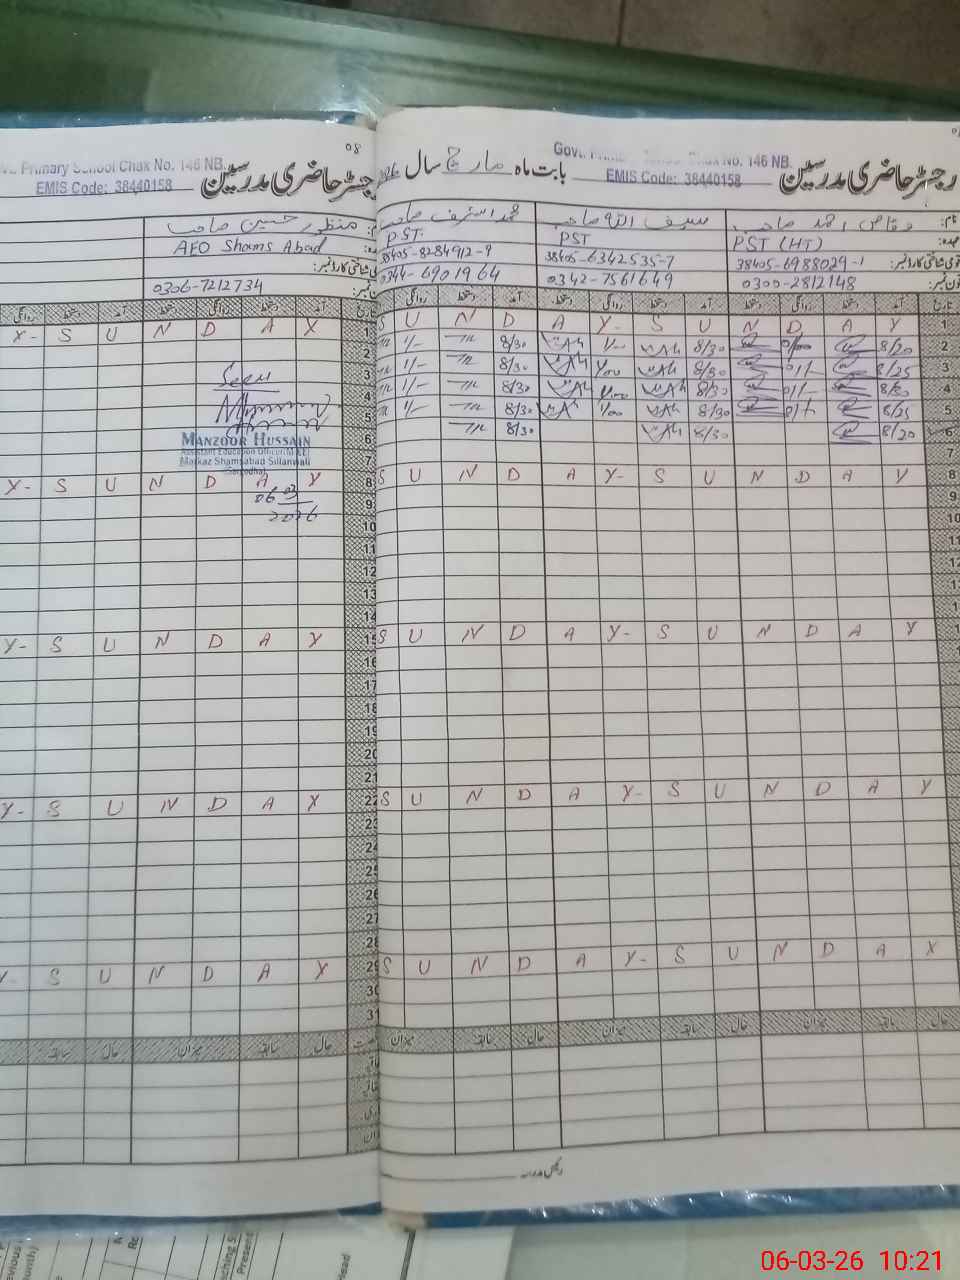 Govt. Primary School Chak No. 146 NB.
EMIS Code: 38440158
رجسٹر حاضری مدرسین
بابت ماہ مارچ سال
وقاص احمد صاحب
PST (HT)
38405-6988029-1
0300-2812148
سیف اللہ صاحب
PST
38405-6342535-7
0342-7561649
محمد اشرف صاحب
PST.
38405-8284912-9
0344-6901964
تاریخ آمد دستخط روانگی آمد دستخط روانگی آمد دستخط روانگی
1 Y A D N U S Y- A D N U S
2 8/20 8/30 8/30
3 8/25 8/30 8/30
4 8/30 8/30 8/30
5 8/25 8/30 8/30
6 8/20 8/30 8/30
7
8 Y A D N U S Y- A D N U S
9
10
11
12
13
Y A D N U S Y- A D N U S
Y A D N U S Y- A D N U S
X A D N U S Y- A D N U S
حال سابقہ میزان حال سابقہ میزان حال سابقہ میزان
رئیس مدرسہ
٥٨
Primary School Chak No. 146 NB.
EMIS Code: 38440158
رجسٹر حاضری مدرسین
منظور حسین صاحب
AEO Shams Abad
0306-7212734
تاریخ آمد دستخط روانگی آمد دستخط روانگی
1 X A D N U S X-
2
3
Seen
4
5
6
MANZOOR HUSSAIN
Assistant Education Officer(M-EE)
Markaz Shamsabad Sillanwali
(Sargodha)
7
8 Y A D N U S Y-
06 03
9
2026
10
11
12
13
14
15 Y A D N U S Y-
16
17
18
19
20
21
22 X A D N U S Y-
23
24
25
26
27
28
29 Y A D N U S Y-
30
31
حال سابقہ میزان حال سابقہ
06-03-26 10:21